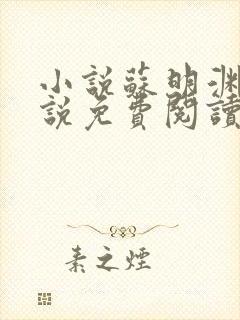 小說蘇明淵
說免費閱讀
素之煙